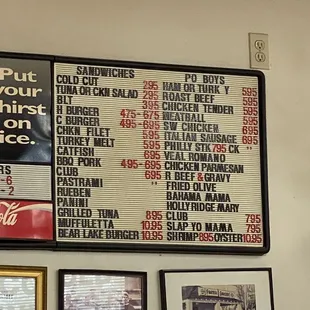 Put
your
thirst
on
ice.
SANDWICHES
COLD CUT 295
TUNA OR CKN SALAD 295
BLT 395
H BURGER 475-675
C BURGER 495-695
CHKN FILET 595
TURKEY MELT 595
CATFISH 595
BBQ PORK 495-695
CLUB 695
PASTRAMI "
RUBEN
PANINI
GRILLED TUNA 895
MUFFULETTA 10.95
BEAR LAKE BURGER 10.95
PO BOYS
HAM OR TURK Y 595
ROAST BEEF 595
CHICKEN TENDER 595
MEATBALL 595
SW CHICKEN 695
ITALIAN SAUSAGE 695
PHILLY STK 795 CK "
VEAL ROMANO
CHICKEN PARMESAN
R BEEF & GRAVY
FRIED OLIVE
BAHAMA MAMA
HOLLY RIDGE MARY
CLUB 795
SLAP YO MAMA 795
SHRIMP 895 OYSTER 10.95